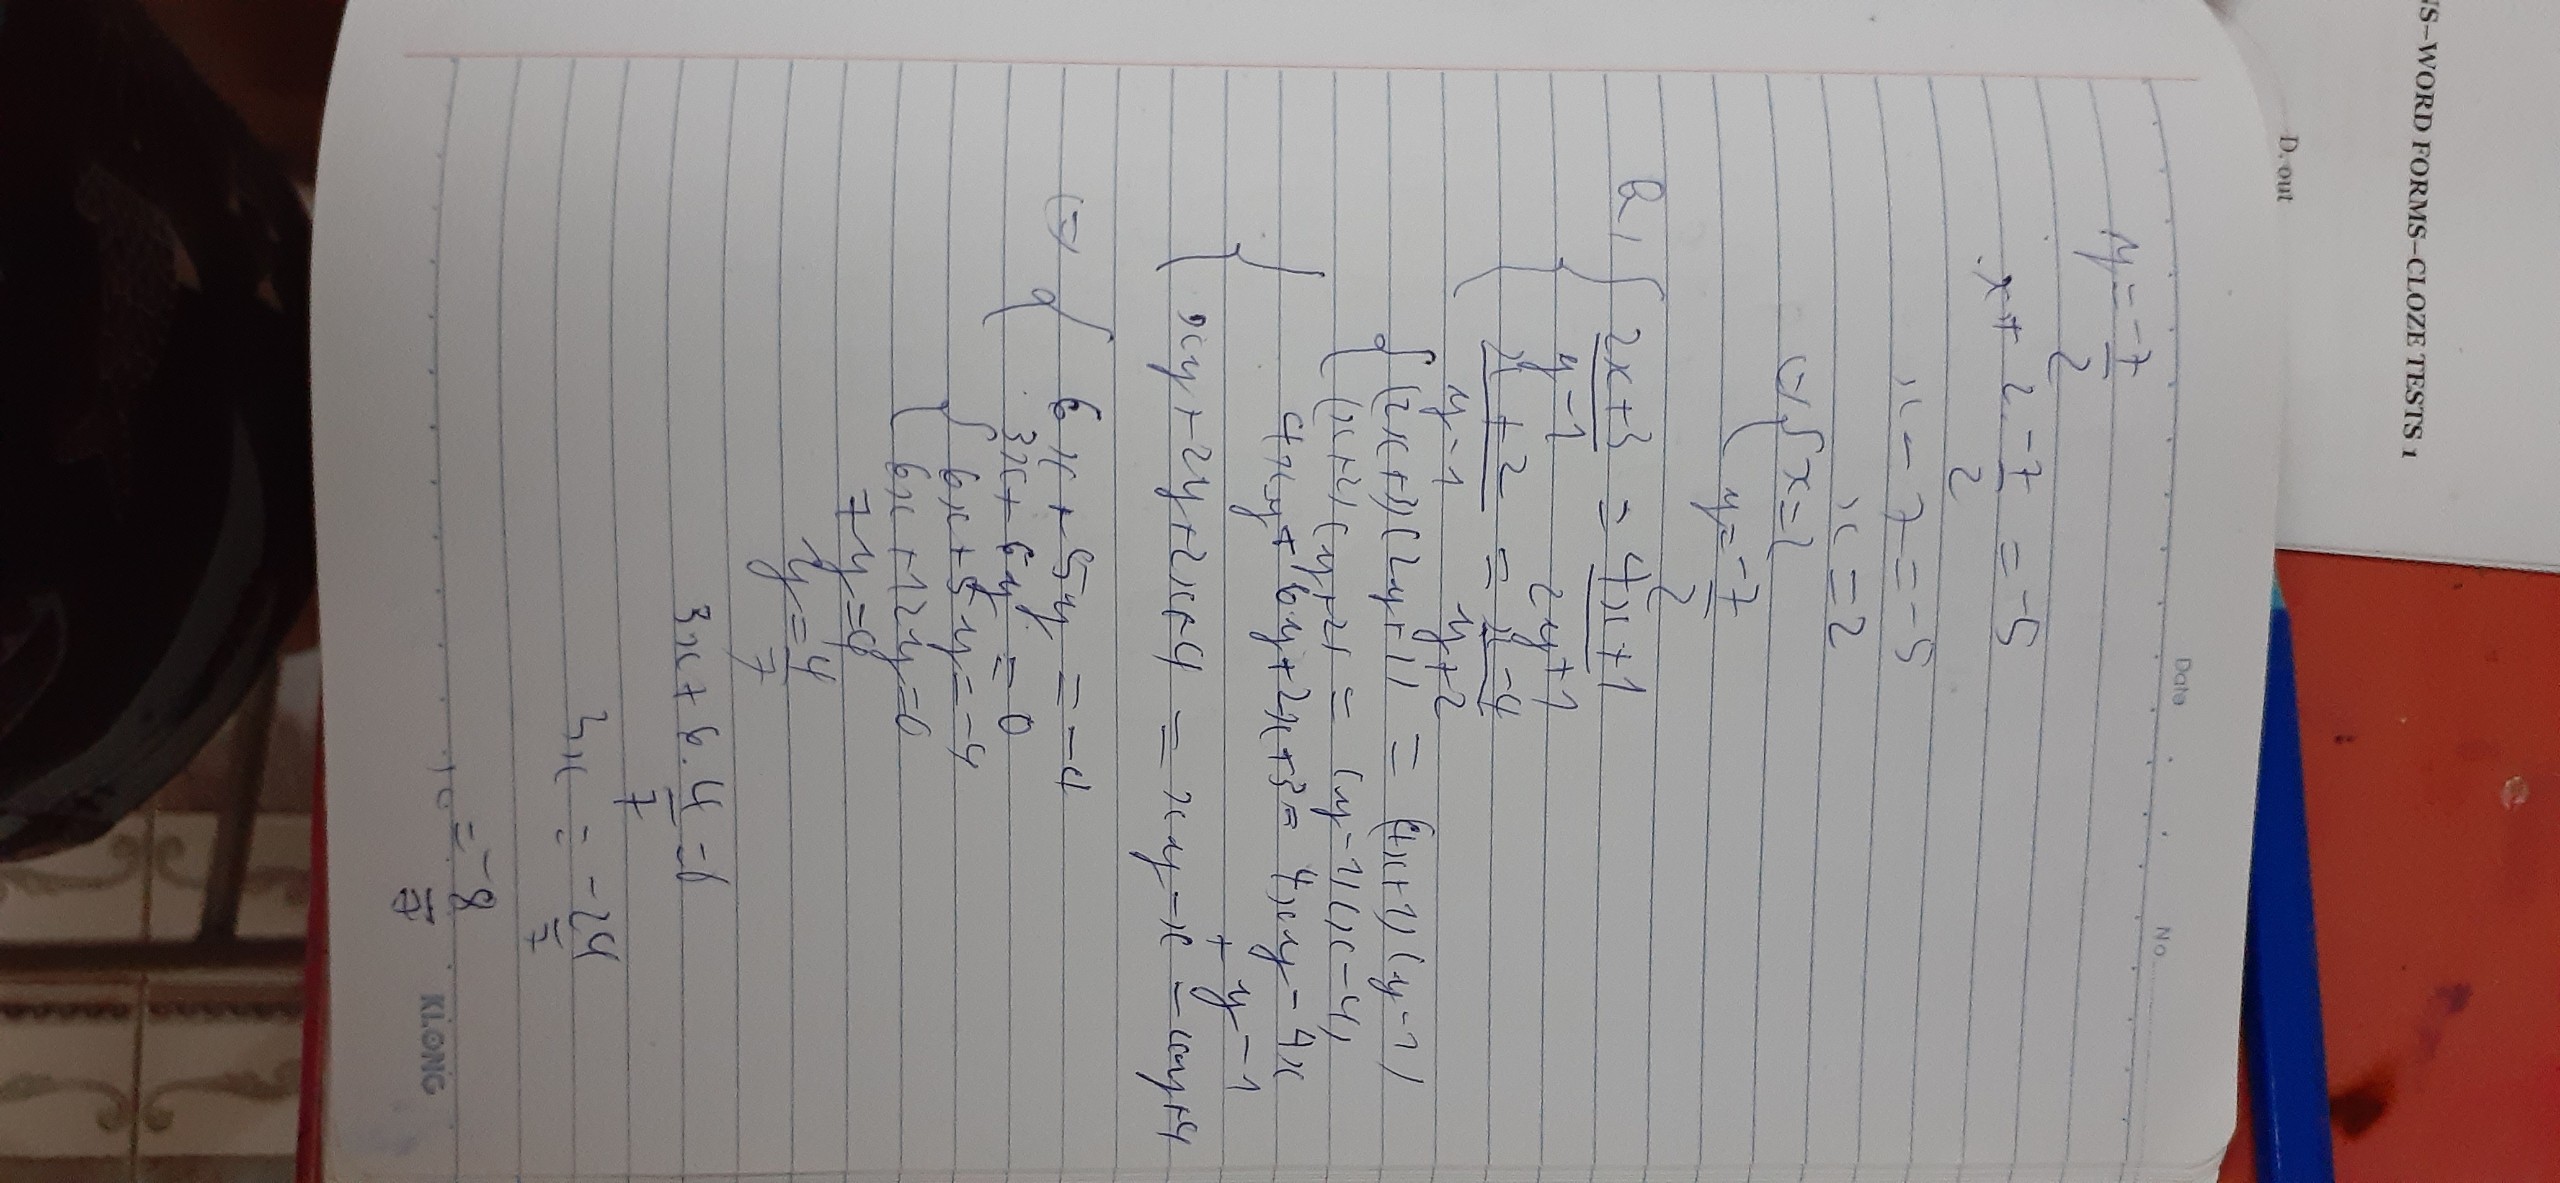 NS–WORD FORMS–CLOZE TESTS 1
D. out
Date
No
y = -7/2
x + 2 . -7/2 = -5
x - 7 = -5
x = 2
⇔ { x = 2
{ y = -7/2
2, { (2x+3)/(y-1) = (4x+1)/(2y+1)
{ (x+2)/(y-1) = (x-4)/(y+2)
{ (2x+3)(2y+1) = (4x+1)(y-1)
{ (x+2)(y+2) = (y-1)(x-4)
{ 4xy + 6y + 2x + 3 = 4xy - 4x + y - 1
{ xy + 2y + 2x + 4 = xy - x - 4y + 4
⇔ { 6x + 5y = -4
{ 3x + 6y = 0
{ 6x + 5y = -4
{ 6x + 12y = 0
7y = 4
y = 4/7
3x + 6 . 4/7 = 0
3x = -24/7
= -8/7
KLONG